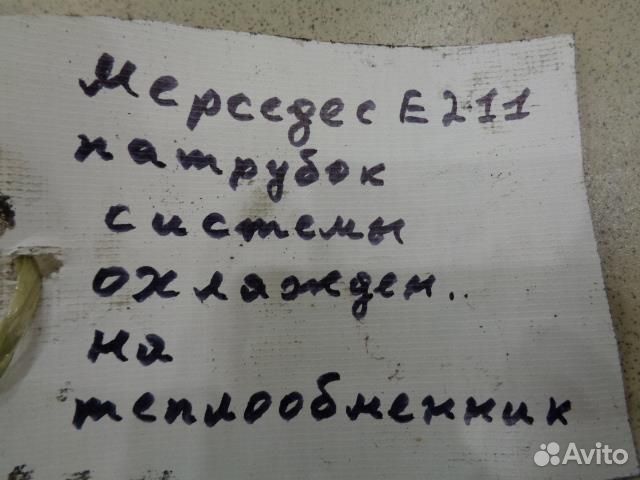 Мерседес E211
патрубок
системы
охлажден..
на
теплообменник
Avito